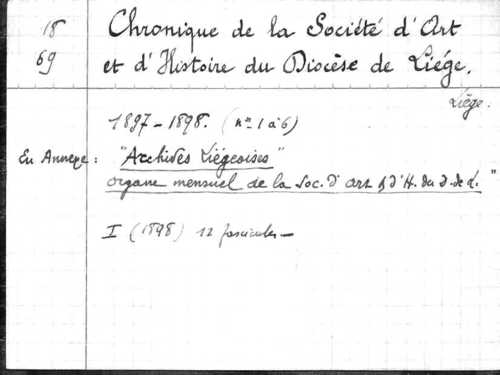 18
69
Chronique de la Société d'Art
et d'Histoire du Diocèse de Liége.
Liége.
1897-1898. (nos 1 à 6)
En Annexe : "Archives Liégeoises"
organe mensuel de la Soc. d'art & d'H. du d. de L. "
I (1898) 12 fascicules —